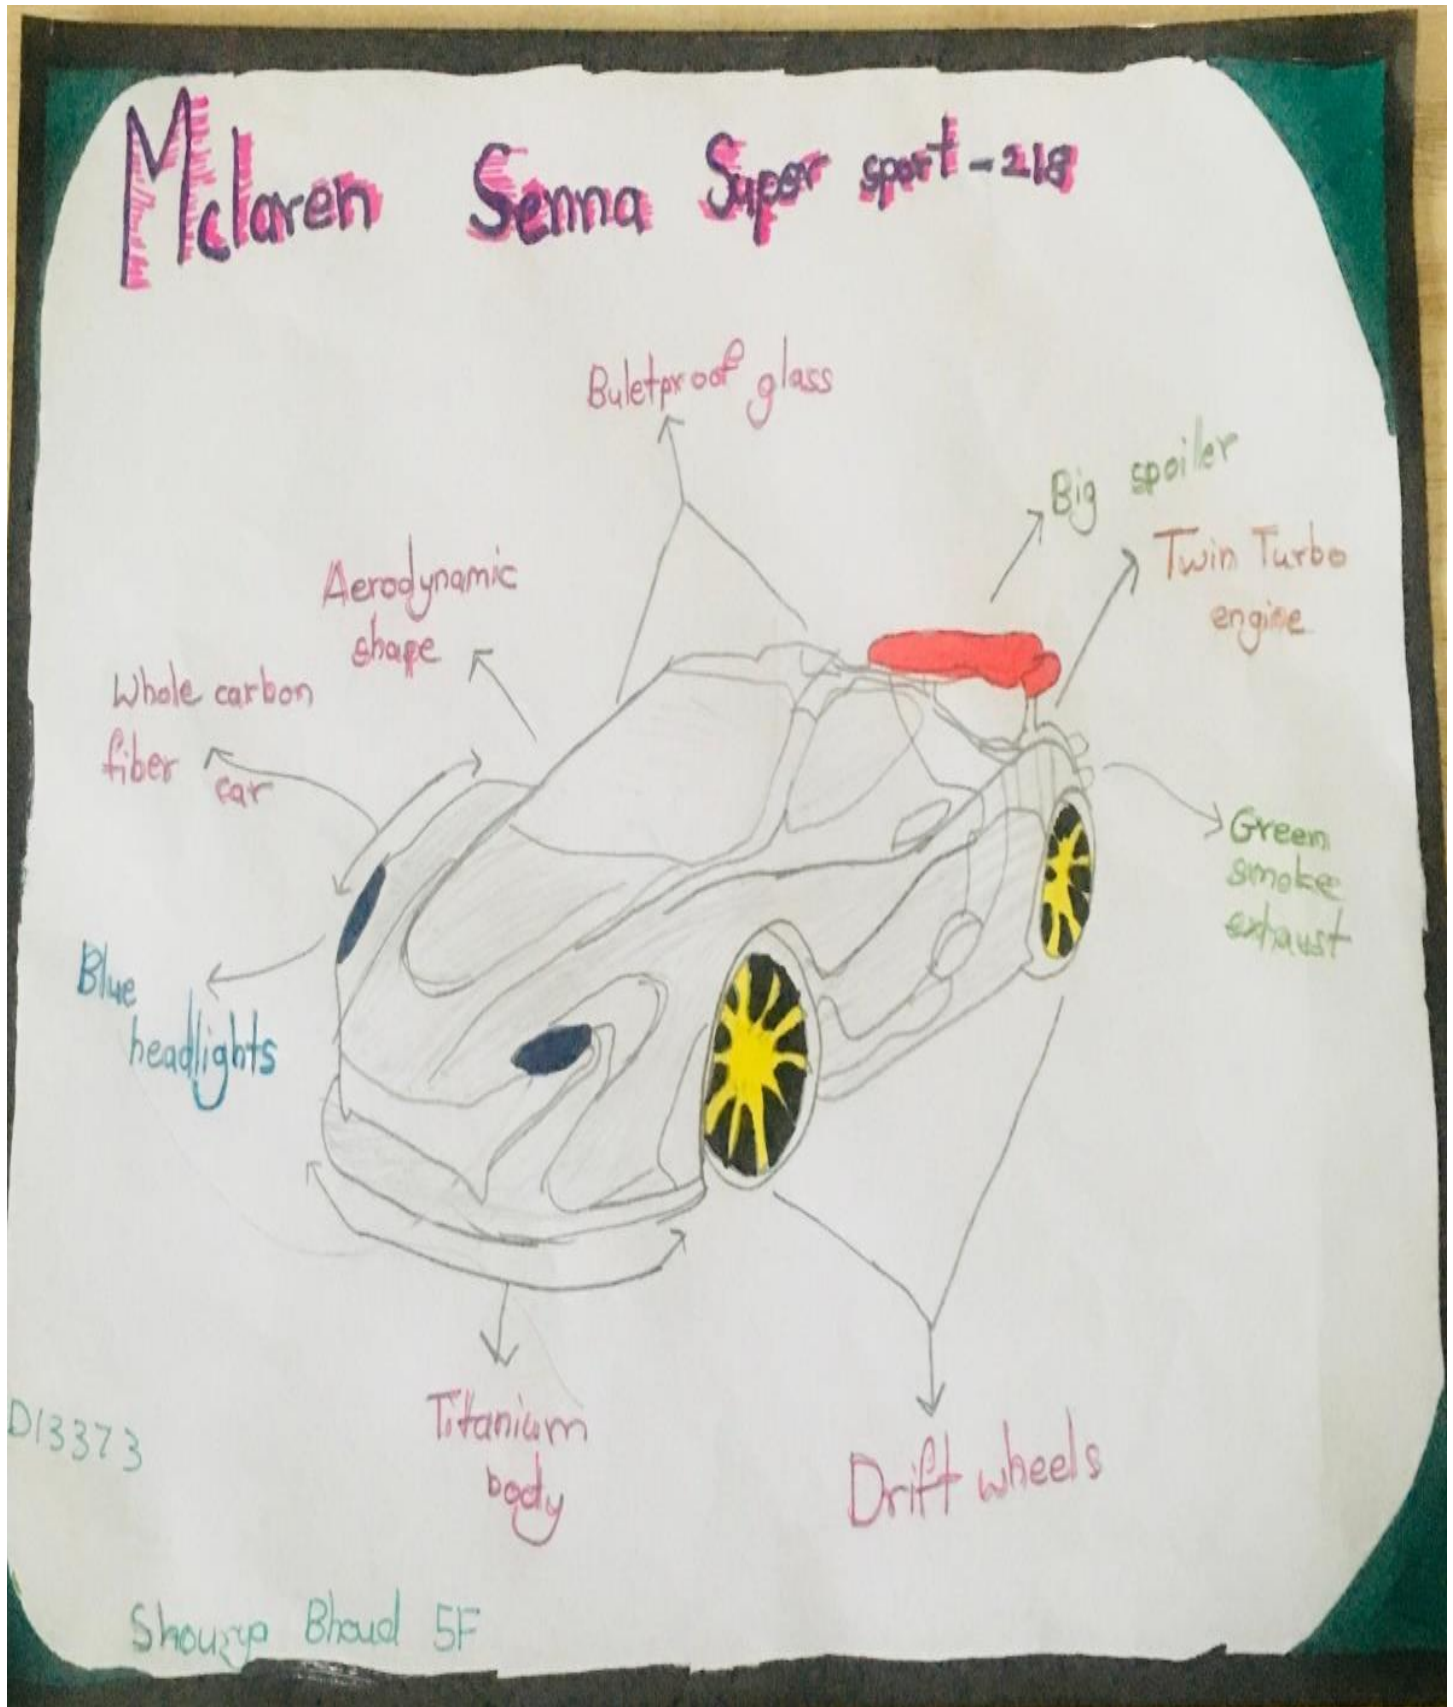 Mclaren Senna Super sport-218
Buletproof glass
Big spoiler
Twin Turbo
engine
Aerodynamic
shape
Whole carbon
fiber car
Green
smoke
exhaust
Blue
headlights
Titanium
body
Drift wheels
D13373
5F